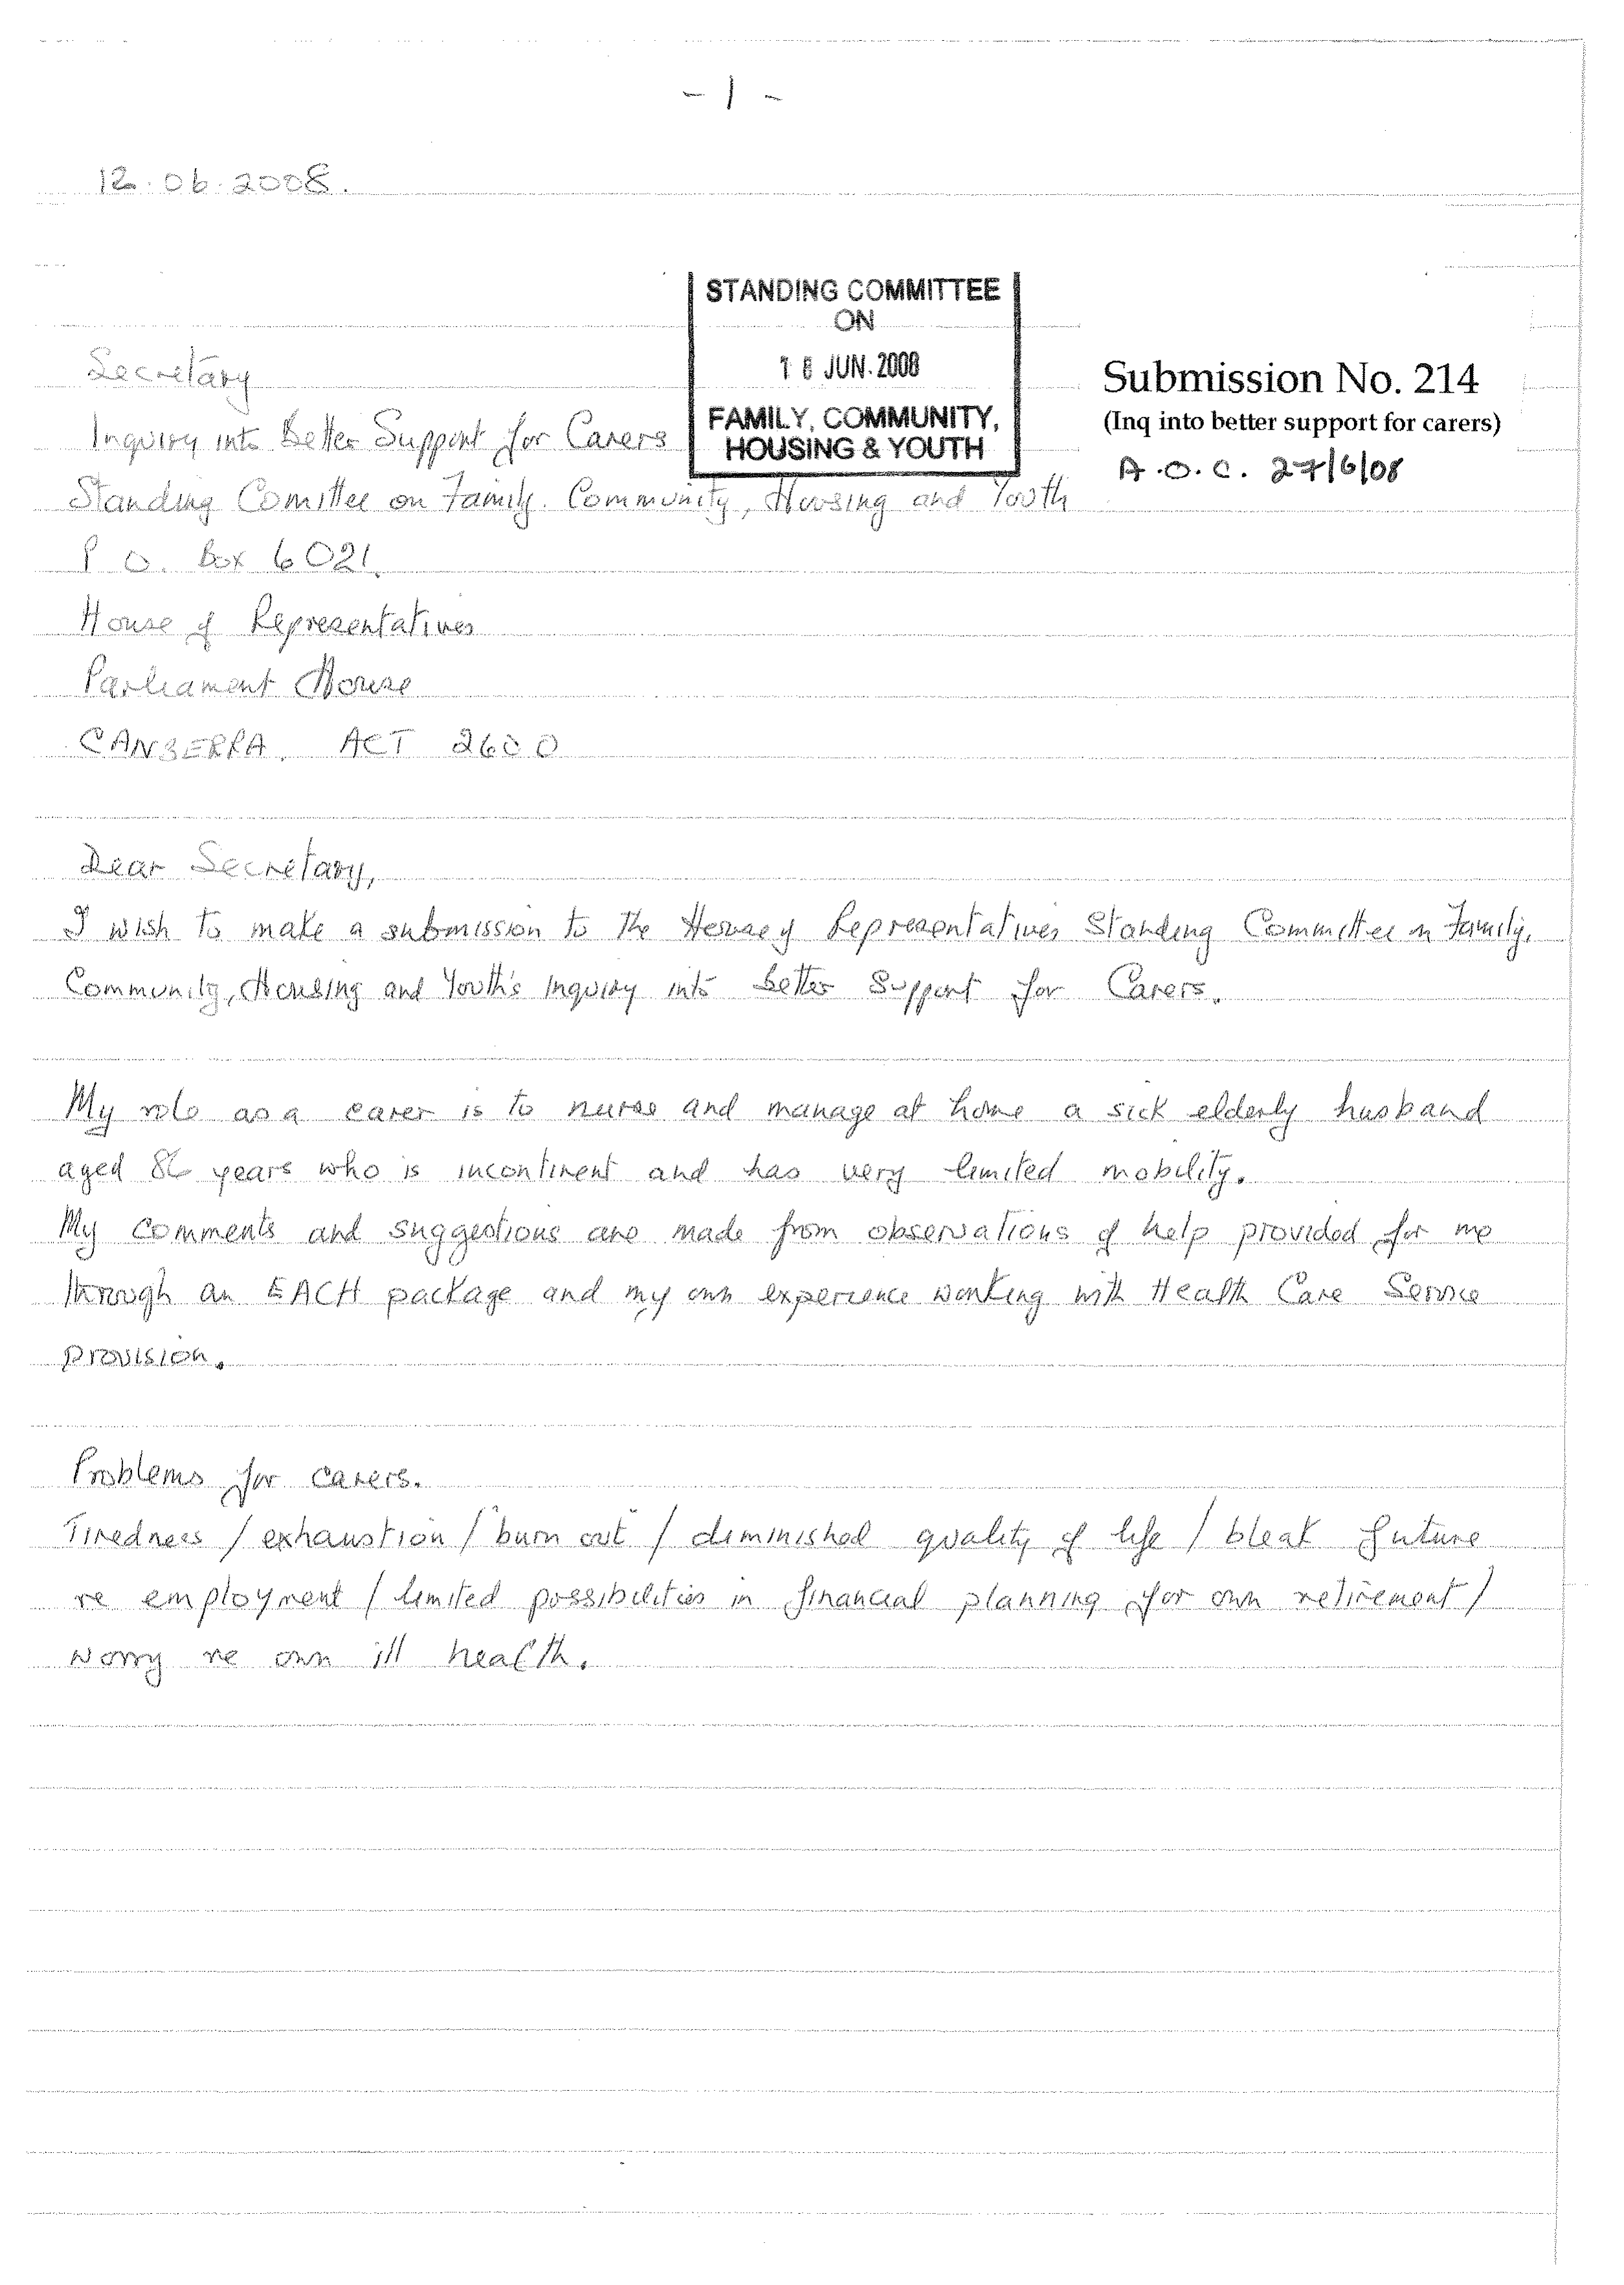 - 1 -
12.06.2008.
STANDING COMMITTEE
ON
JUN. 2008
FAMILY, COMMUNITY,
HOUSING & YOUTH
Submission No. 214
(Inq into better support for carers)
A.O.C. 27/6/08
Secretary
Inquiry into Better Support for Carers
Standing Comittee on Family. Community, Housing and Youth
P O. Box 6021.
House of Representatives
Parliament House
CANBERRA. ACT 2600
Dear Secretary,
I wish to make a submission to the House of Representatives Standing Committee on Family,
Community, Housing and Youth's Inquiry into Better Support for Carers.
My role as a carer is to nurse and manage at home a sick elderly husband
aged 86 years who is incontinent and has very limited mobility.
My comments and suggestions are made from observations of help provided for me
through an EACH package and my own experience working with Health Care Service
provision.
Problems for carers.
Tiredness / exhaustion / "burn out" / diminished quality of life / bleak future
re employment / limited possibilities in financial planning for own retirement /
worry re own ill health.